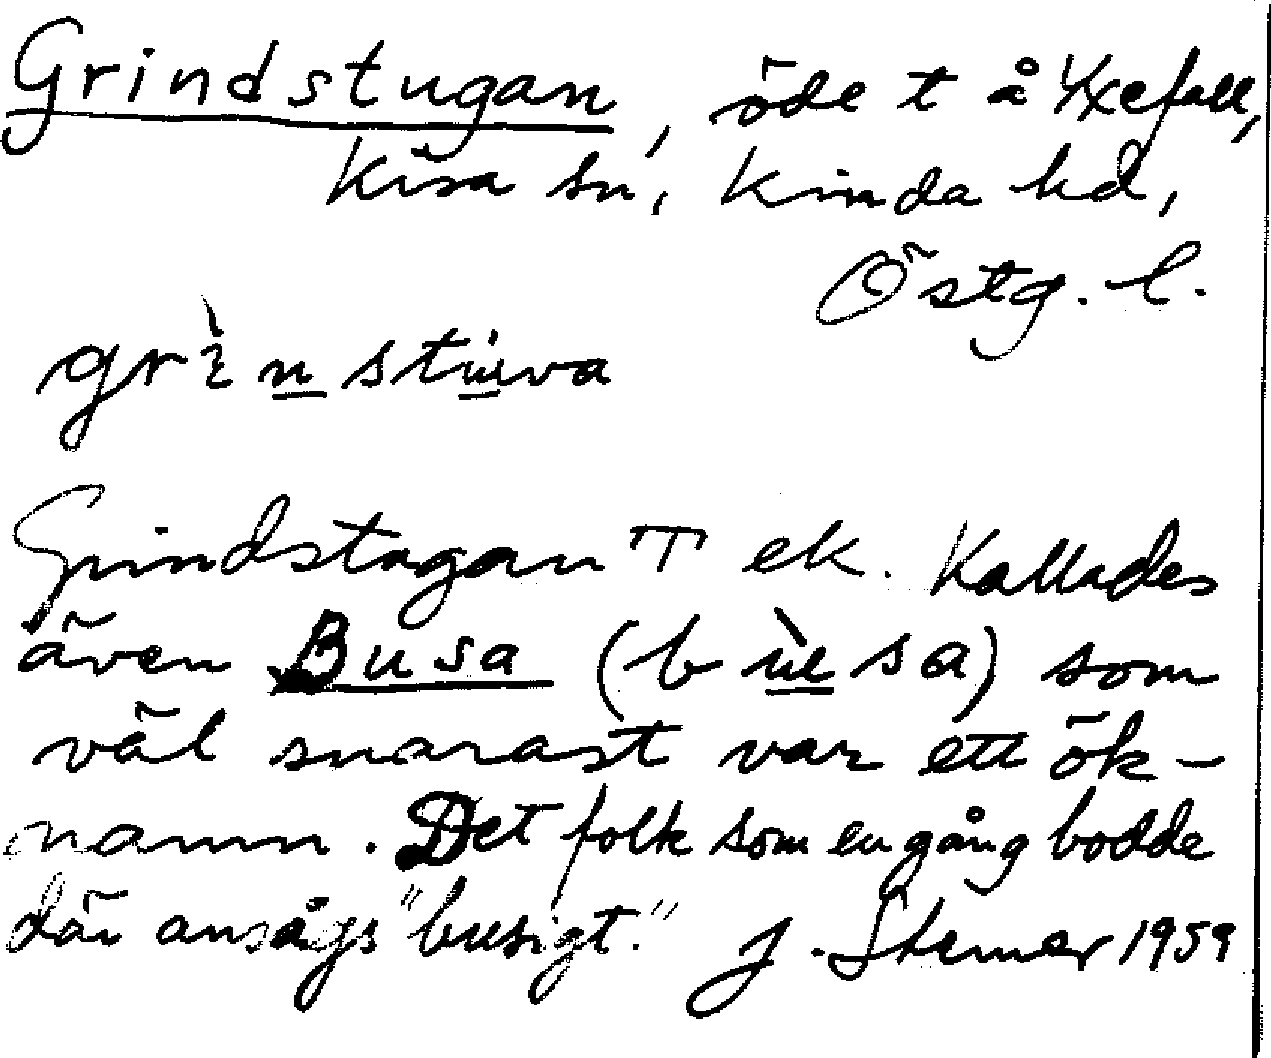 Grindstugan, öde t å Yxefall,
Kisa sn, Kinda hd,
Östg. l.
grìnstùeva
Grindstugan T ek. Kallades
även Busa (bùesa) som
väl snarast var ett ök-
namn. Det folk som en gång bodde
där ansågs "busigt." J. Sterner 1959